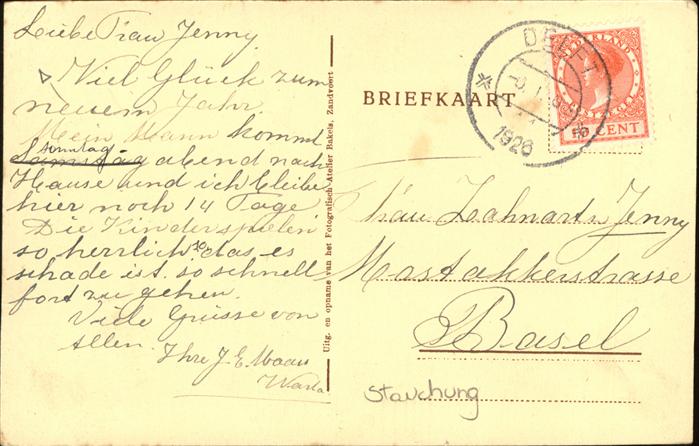 Liebe Frau Jenny.
Viel Glück zum
neuem Jahr.
Mein Mann kommt
Sonntag
Samstag abend nach
Hause und ich bleibe
hier noch 14 Tage
Die Kinder spielen
so herrlich, das es
schade ist so schnell
fort zu gehen.
Viele Grüsse von
Allen. Ihre J. E. Maan
Uitg. en opname van het Fotografisch Atelier Bakels, Zandvoort
BRIEFKAART
DELFT
1926
NEDERLAND
CENT
Frau Zahnarts Jenny
Mostakkerstrasse
Basel
Stauchung